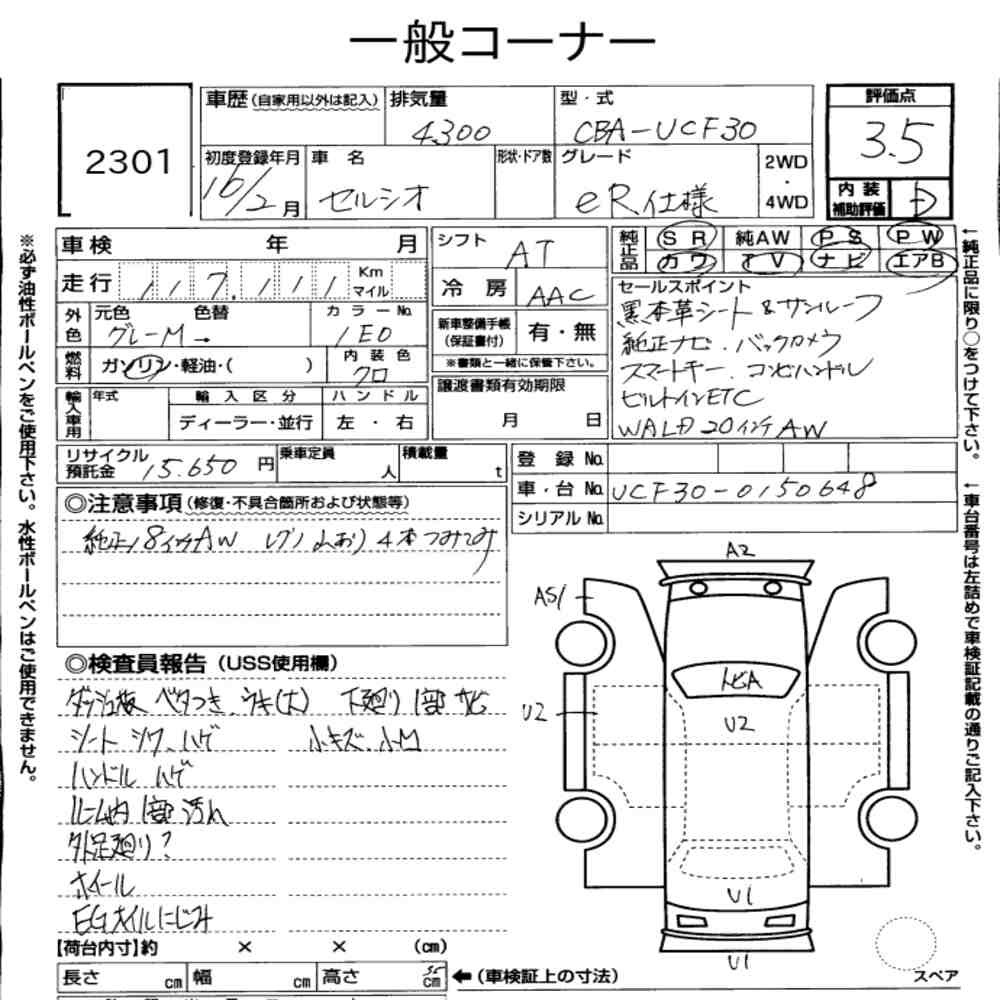 一般コーナー
2301
車歴(自家用以外は記入) 排気量 型・式 評価点
4300 CBA-UCF30 3.5
初度登録年月 車名 形状・ドア数 グレード 2WD・4WD
16/2月 セルシオ eR仕様
内装補助評価 D
車検 年 月 シフト AT
純正品 SR 純AW PS PW
カワ TV ナビ エアB
走行 117,111 Km マイル
冷房 AAC
セールスポイント
黒本革シート&サンルーフ
純正ナビ.バックカメラ
スマートキー.コンビハンドル
ビルトインETC
WALD 20インチAW
外色 元色 色替 カラーNo.
グレーM→ 1E0
新車整備手帳(保証書付) 有・無
※書類と一緒に保管下さい。
燃料 ガソリン・軽油・( ) 内装色 クロ
譲渡書類有効期限
月 日
輸入車用 年式 輸入区分 ハンドル
ディーラー・並行 左・右
リサイクル預託金 15.650円 乗車定員 人 積載量 t
登録No.
車・台No. UCF30-0150648
シリアルNo.
◎注意事項(修復・不具合箇所および状態等)
純正18インチAW レグノ 山あり 4本つみこみ
◎検査員報告(USS使用欄)
ダッシュ板 ベタつき.ウキ(大) 下廻り1部サビ
シート シワ.ハゲ 小キズ.小M
ハンドル ハゲ
ルーム内1部汚れ
外足廻り?
ホイール
EGオイルにじみ
【荷台内寸】約 × × (cm)
長さ cm 幅 cm 高さ cm
←(車検証上の寸法)
A2
AS1
トビA
U2
U2
U1
U1
スペア
※必ず油性ボールペンをご使用下さい。水性ボールペンはご使用できません。
←純正品に限り○をつけて下さい。
←車台番号は左詰めで車検証記載の通りご記入下さい。